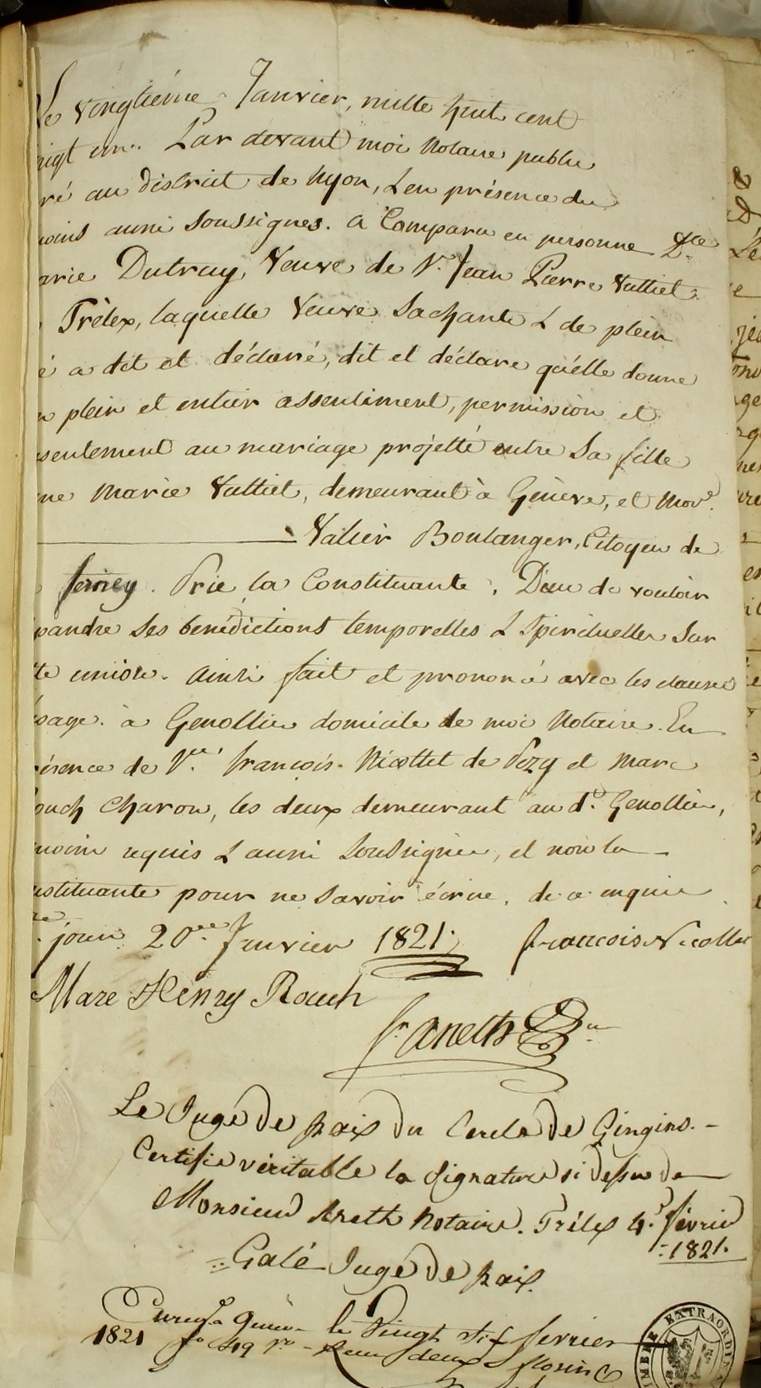 Le vingtiéme Janvier, mille huit cent
vigt un. Par devant moi Notaire public
ré au district de Nyon, & en présence des
moins aussi soussignés. a Comparu en personne D.lle
arie Dutruy, Veuve de Sr. Jean Pierre Valliet
Trélex, laquelle Veuve Sachante & de plein
é a dit et déclaré, dit et déclare qu'elle donne
n plein et entier assentiment, permission et
sentement au mariage projetté entre Sa fille
ne Marie Valliet, demeurant à Genève, et
Valier Boulanger, Citoyen de
ferney. Prie la Constituante, Dieu de vouloir
pandre Ses bénédictions temporelles & Spirituelles Sur
tte union. Ainsi fait et prononcé avec les clauses
sage. à Genollier domicile de moi Notaire. En
résence de François Nicollet de et Marc
Charon, les deux demeurant au d.t Genollier,
moins requis & aussi Soussignés, et non la
nstituante pour ne Savoir écrire, de ce enquise
jour 20.me Janvier 1821. françois Nicollet
Marc Henry Rouch
Aneth
Le Juge de paix du Cercle de Gingins.
Certifie véritable la Signature si dessus de
Monsieur Aneth Notaire. Trélex 4.e février
1821.
Galé Juge de paix.
le Vingt Six fevrier
1821 fo 19 vo deux florins
TIMBRE EXTRAORDI